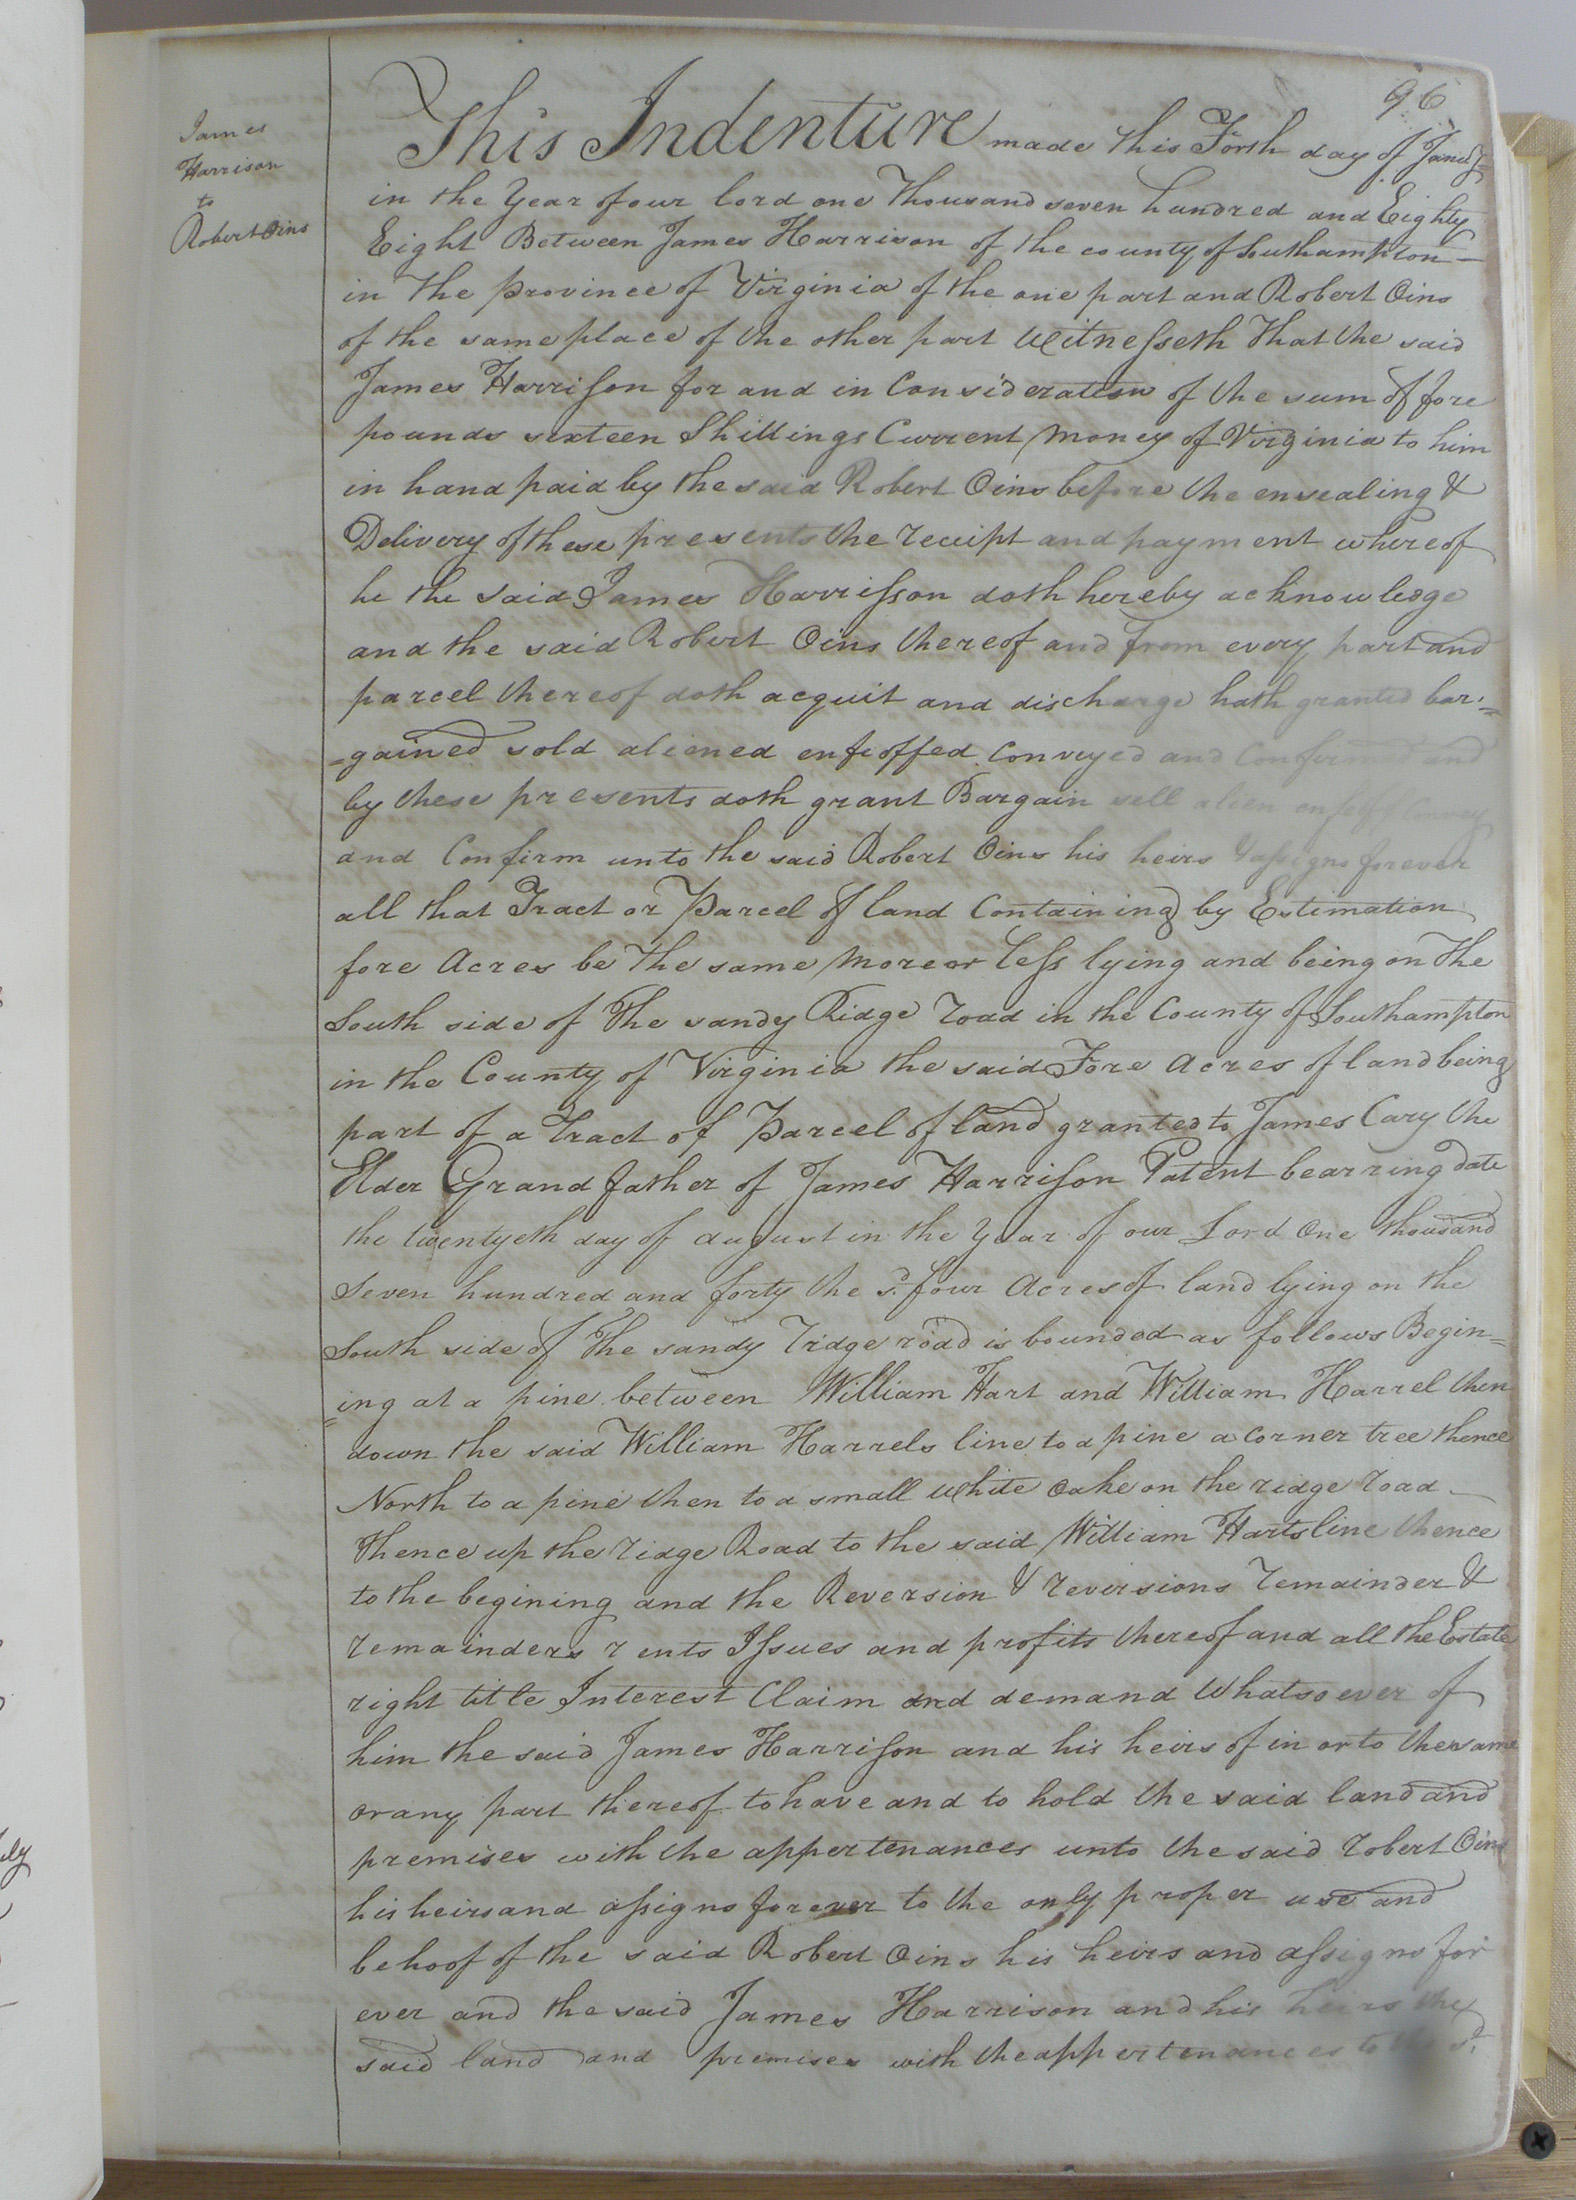 96
James
Harrison
to
Robert Oins
This Indenture made this Forth day of Janu.y
in the Year of our lord one Thousand seven hundred and Eighty
Eight Between James Harrison of the county of Southampton
in the Province of Virginia of the one part and Robert Oins
of the same place of the other part Witnesseth That the said
James Harrison for and in Consideration of the sum of fore
pounds sixteen Shillings Current Money of Virginia to him
in hand paid by the said Robert Oins before the ensealing &
Delivery of these presents the receipt and payment whereof
he the said James Harrisson doth hereby acknowledge
and the said Robert Oins thereof and from every part and
parcel thereof doth acquit and discharge hath granted bar=
=gained sold aliened enfeoffed Conveyed and Confirmed and
by these presents doth grant Bargain sell alien enfeoff Convey
and Confirm unto the said Robert Oins his heirs & assigns forever
all that Tract or Parcel of land Containing by Estimation
fore Acres be the same more or less lying and being on The
South side of The sandy Ridge road in the County of Southampton
in the County of Virginia the said Fore Acres of land being
part of a Tract of Parcel of land granted to James Cary the
Elder Grand father of James Harrison Patent bearring date
the twentyeth day of august in the Year of our Lord One thousand
Seven hundred and forty the sd. four Acres of land lying on the
South side of The sandy ridge road is bounded as follows Begin=
=ing at a pine between William Hart and William Harrel then
down the said William Harrels line to a pine a corner tree thence
North to a pine then to a small white oake on the ridge road
thence up the ridge Road to the said William Harts line thence
to the begining and the Reversion & reversions remainder &
remainders rents Issues and profits thereof and all the Estate
right title Interest Claim and demand Whatsoever of
him the said James Harrison and his heirs of in or to the same
or any part thereof to have and to hold the said land and
premises with the appertenances unto the said robert Oins
his heirs and assigns forever to the only proper use and
behoof of the said Robert Oins his heirs and assigns for
ever and the said James Harrison and his heirs the
said land and premises with the appertenances to the sd.